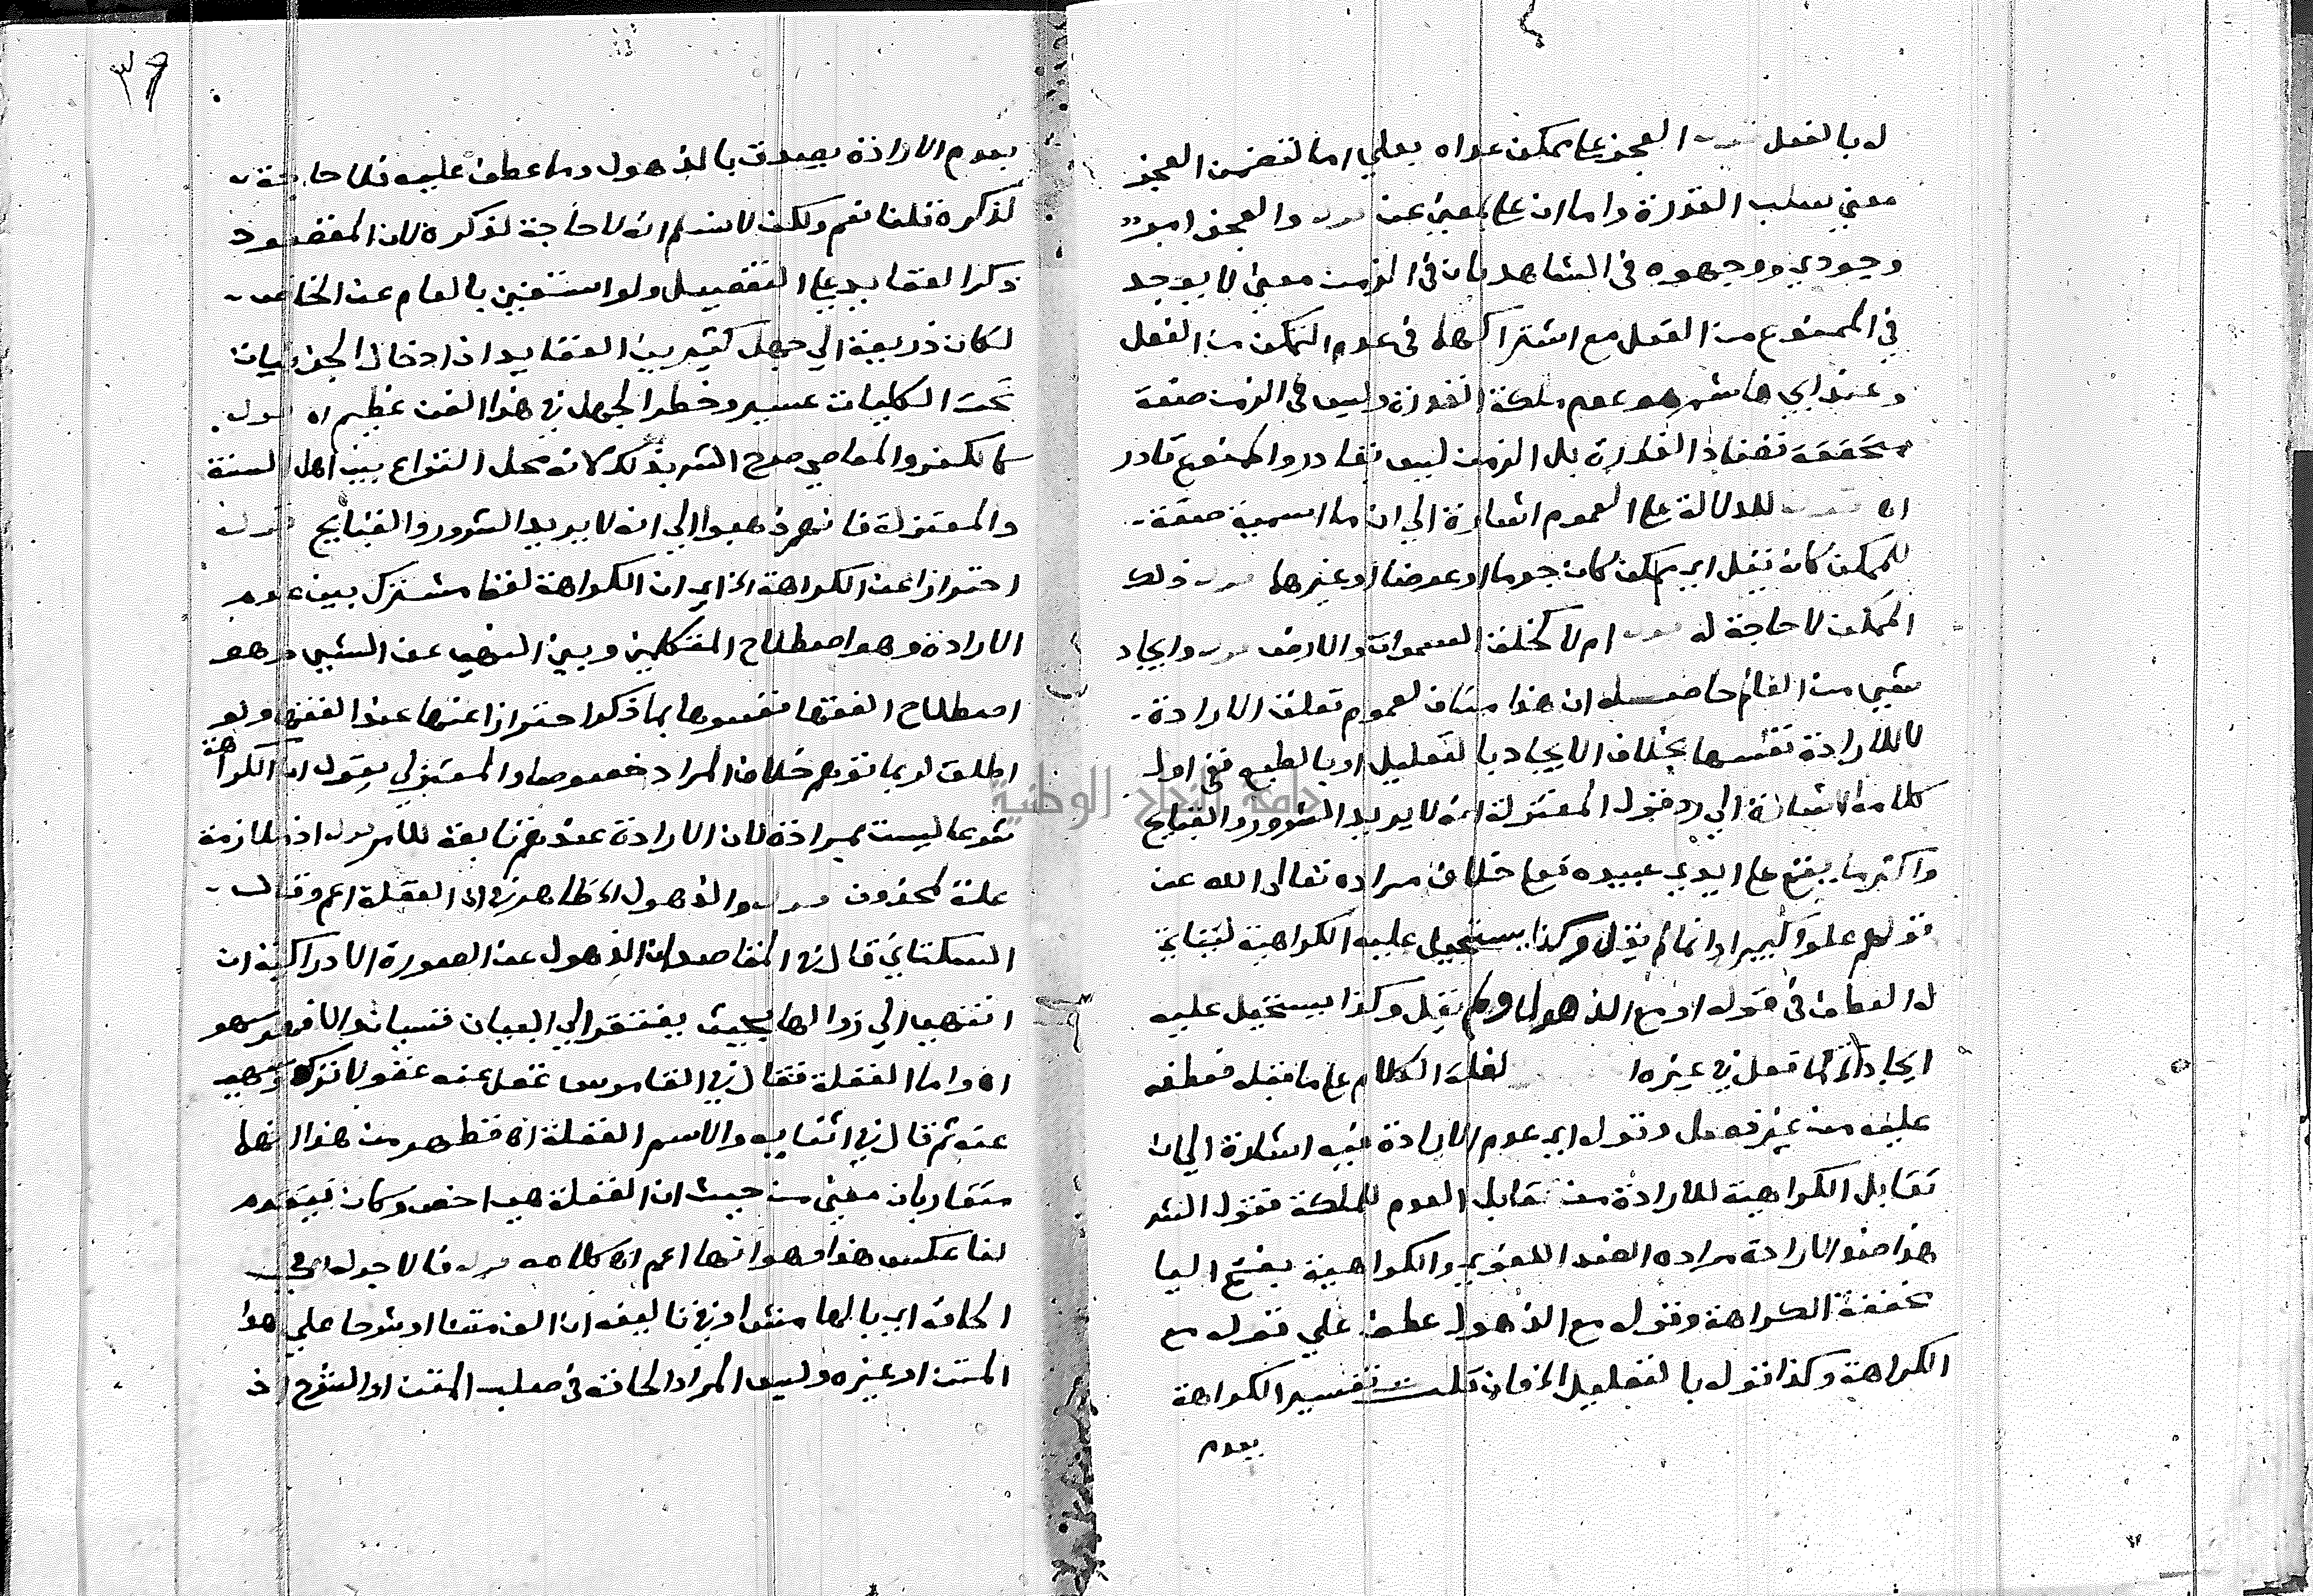 له بالفعل قوله العجز عن ممكن عداه بعلي اما لتضمن العجز
معني سلب القدرة واما ان علي بمعني عن قوله والعجز امر
وجودي ووجهوه في الشاهد بان في الزمن معني لا يوجد
في الممنوع من الفعل مع اشتراكهما في عدم التمكن من الفعل
وعند ابي هاشم هو عدم ملكة القدرة وليس في الزمن صفة
متحققة تضاد القدرة بل الزمن ليس بقادر والممنوع قادر
اه قوله للدلالة علي العموم اشارة الي ان ما اسمية صفة
لممكن كانه يقل اي ممكن كان جرما او عرضا او غيرها قوله ذلك
الممكن لا حاجة له قوله ام لا كخلق السموات والارض قوله وايجاد
شيي من العالم حاصله ان هذا مناف لعموم تعلق الارادة
لا للارادة نفسها بخلاف الايجاد بالتعليل او بالطبع ففي اول
كلامه اشارة الي رد قول المعتزلة انه لا يريد الشرور والقبايح
واكثر ما يقع علي ايدي عبيده تقع خلاف مراده تعالي الله عن
قولهم علوا كبيرا وانما لم يقل وكذا يستحيل عليه الكراهية لنيابة
له العطف في قوله او مع الذهول ولم يقل وكذا يستحيل عليه
ايجاد الخ كما فعل في غيره لقلة الكلام علي ما قبله فعطفه
عليه من غير فصل وقوله اي عدم الارادة فيه اشارة الي ان
تقابل الكراهية للارادة من تقابل العدم للملكة فقول الش
هذا ضد الارادة مراده الضد اللغوي والكراهية بفتح اليا
مخففة الكراهة وقوله مع الذهول عطف علي قوله مع
الكراهة وكذا قوله بالتعليل الخ فان قلت تفسير الكراهة
بعدم
٣٩
بعدم الارادة يصدق بالذهول وما عطف عليه فلا حاجة
لذكره قلنا نعم ولكن لا نسلم انه لا حاجة لذكره لان المقصود
ذكر العقايد علي التفصيل ولو استغني بالعام عن الخاص
لكان ذريعة الي جهل كثير من العقايد اذ ادخال الجزئيات
تحت الكليات عسير وخطر الجهل في هذا الفن عظيم اه قوله
كالكفر والمعاصي صرح الش بذلك لانه محل النزاع بين اهل السنة
والمعتزلة فانهم ذهبوا الي انه لا يريد الشرور والقبايح قوله
احترازا عن الكراهة الخ اي ان الكراهة لفظ مشترك بين عدم
الارادة وهو اصطلاح المتكلمين وبين النهي عن الشيي وهو
اصطلاح الفقها ففسرها بما ذكر احترازا عنها عند الفقها ولو
اطلق لربما توهم خلاف المراد خصوصا والمعتزلي يقول ان الكراهة
شرعا ليست بمرادة لان الارادة عندهم تابعة للامر قوله اذ ملازمة
علة لمحذوف قوله والذهول الخ ظاهره ان الغفلة اعم وقال
السكتاني قال في المقاصد ان الذهول عن الصورة الادراكية ان
انتهي الي زوالها بحيث يفتقر الي ... فنسيان والا فهو سهو
اه واما الغفلة فقال في القاموس غفل عنه غفولا تركه وسهي
عنه ثم قال في اثنايه والاسم الغفلة اه فظهر من هذا انهما
متقاربان معني من حيث ان الغفلة هي اخص وكان يتقدم
لنا عكس هذا وهو انها اعم اه كلامه قوله فالاجوله اي في
الحاقه اي بالهامش او في تاليفه ان الف متنا او شرحا علي هذا
المتن او غيره وليس المراد الحاقه في صلب المتن او الشرح اذ
جامعة النجاح الوطنية